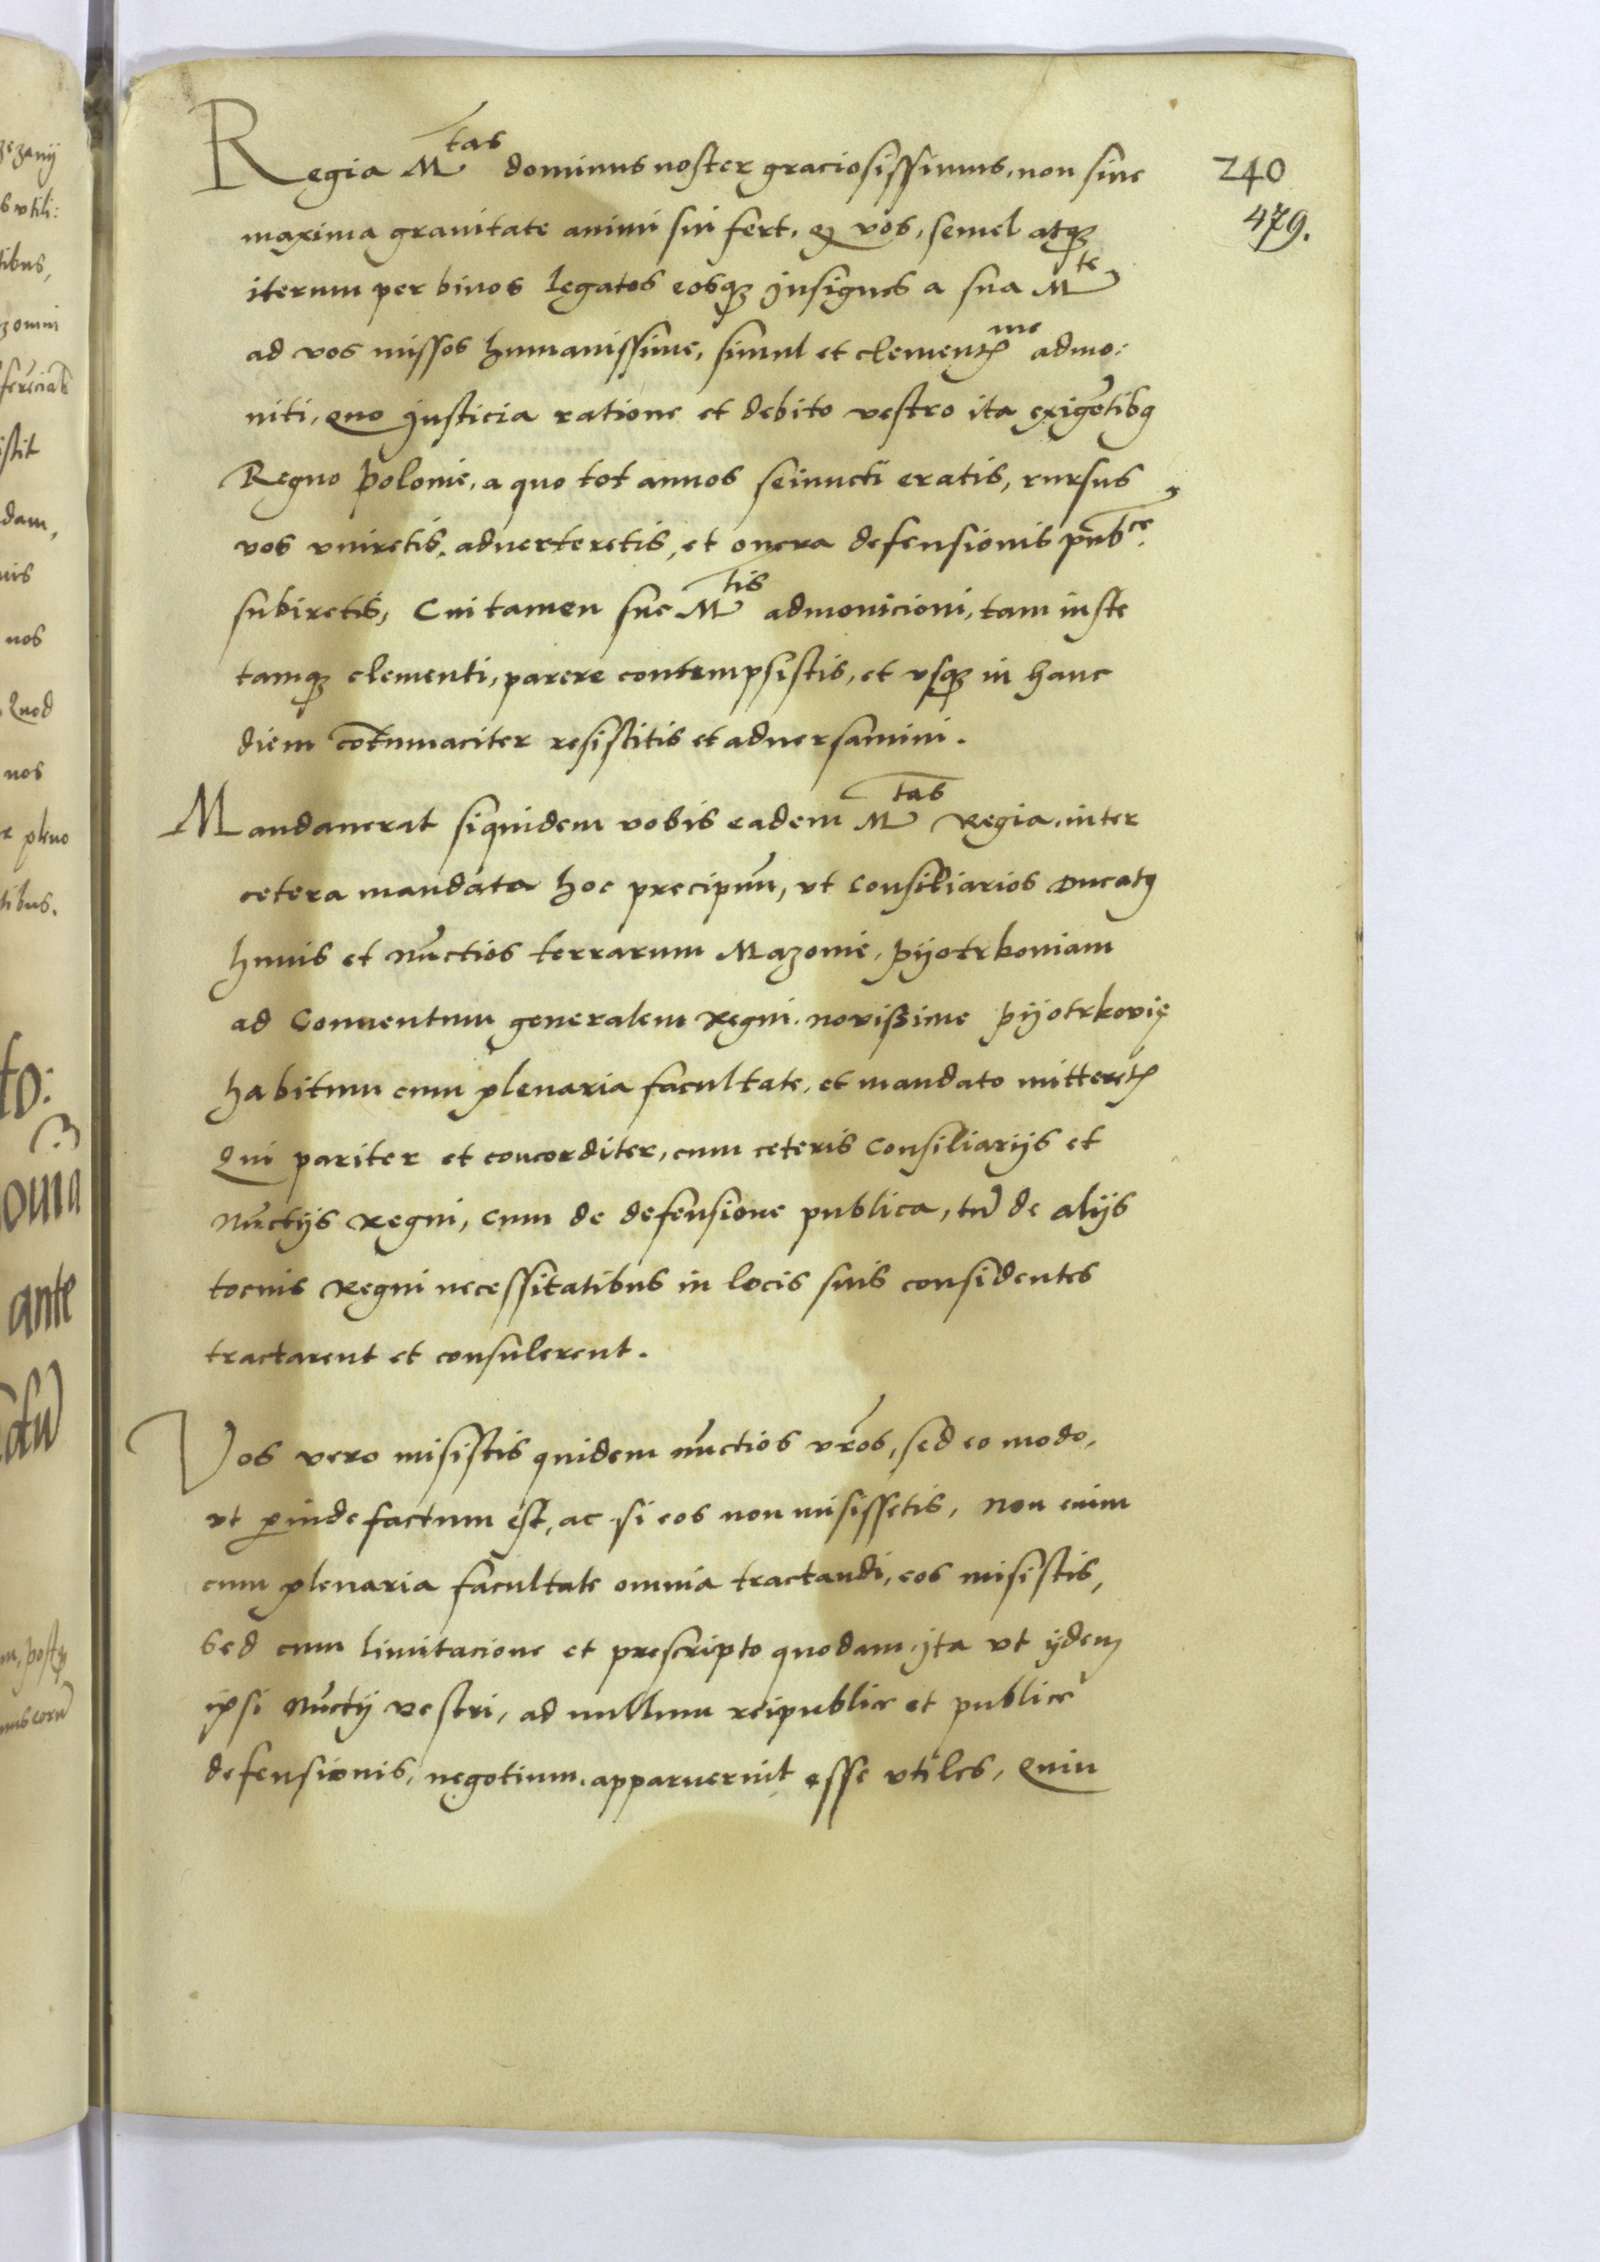 240
479.
Regia M^tas dominus noster graciosissimus, non sine
maxima grauitate animi sui fert, ꝙ vos, semel atqꝫ
iterum per binos legatos eosqꝫ insignes a sua M^te
ad vos missos humanissime, simul et clementꝭ^me admo:
niti, quo justicia ratione et debito vestro ita exigẽtibꝯ
Regno Polonie, a quo tot annos seiuncti eratis, rursus
vos vniretis, aduerteretis, et onera defensionis pub^ce
subiretis, Cui tamen sue M^tis admonicioni, tam iuste
tamqꝫ clementi, parere contempsistis, et vsqꝫ in hanc
diem cõtumaciter resistitis et aduersamini.
Mandauerat siquidem vobis eadem M^tas Regia, inter
cetera mandata hoc precipuũ, vt Consiliarios Ducatꝯ
huius et nũctios terrarum Mazouie, Pijotrkouiam
ad Conuentum generalem Regni nouissime Pijotrkovię
habitum cum plenaria facultate, et mandato mitteretꝭ
Qui pariter et concorditer, cum ceteris Consiliarijs et
Nũctijs Regni, cum de defensione publica, tũ de alijs
tocius Regni necessitatibus in locis suis considentes
tractarent et consulerent.
Vos vero misistis quidem nũctios vr̃os, sed eo modo,
vt ꝑinde factum est, ac si eos non misissetis, Non enim
cum plenaria facultate omnia tractandi, eos misistis,
sed cum limitacione et prescripto quodam, ita vt ijdem
ipsi Nũctij vestri, ad nullum reipublice et publice
defensionis, negotium, apparuerint esse vtiles, Quin